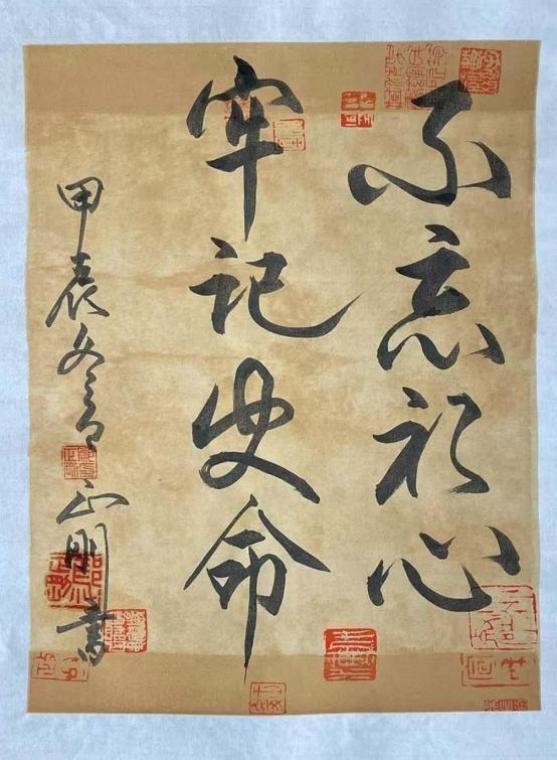 不忘初心
牢记使命
甲辰冬月正明书